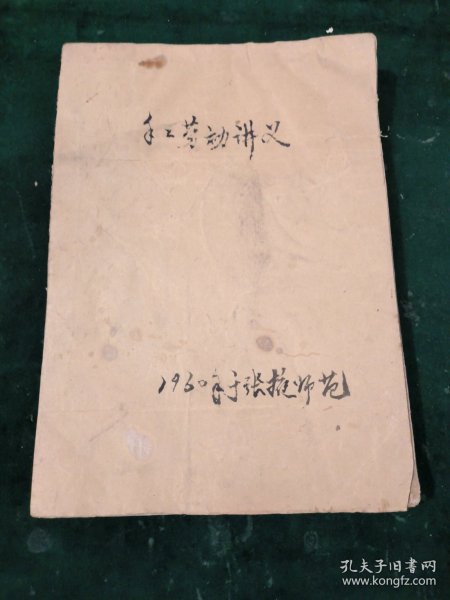 手工劳动讲义
1960年于张掖师范
孔夫子旧书网
www.kongfz.com